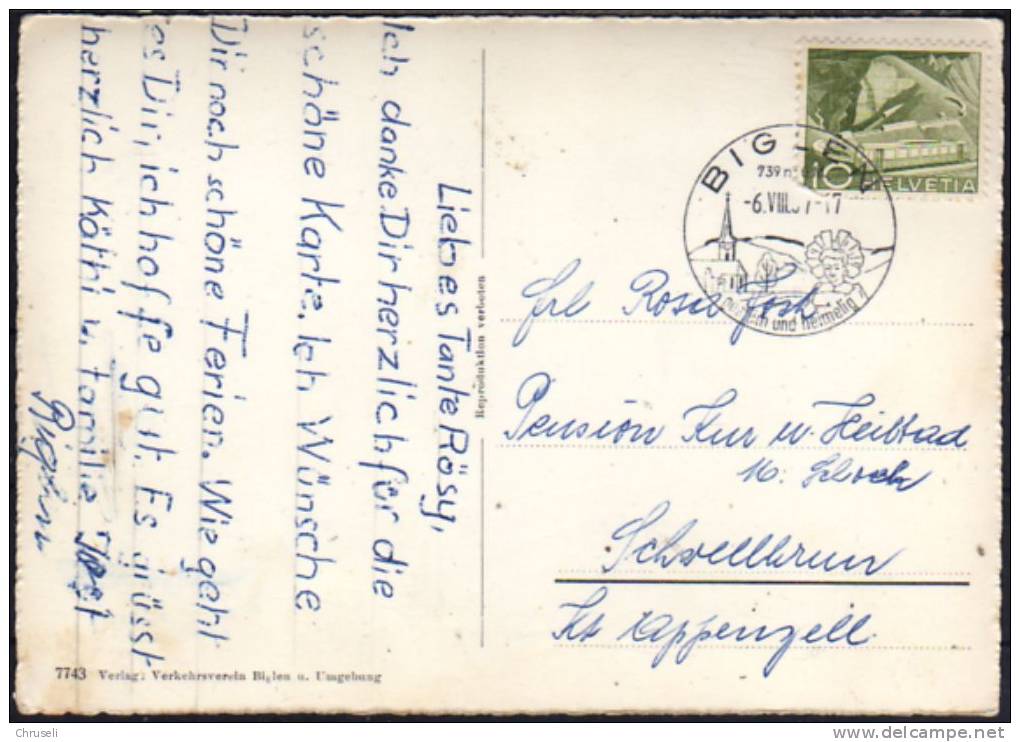 Liebes Tante Rösy,
Ich danke Dir herzlich für die
schöne Karte. Ich Wünsche
Dir noch schöne Ferien. Wie geht
es Dir, ich hoffe gut. Es grüsst
herzlich Käthi u. Familie Jost
Biglen
Reproduktion verboten
HELVETIA
10
BIGLEN
-6.VIII.
-17
und heimelig
Frl Rosa Jost
Pension Kur u. Heilbad
Schwellbrun
Kt Appenzell
7743 Verlag: Verkehrsverein Biglen u. Umgebung
© Chruseli
http://www.delcampe.net